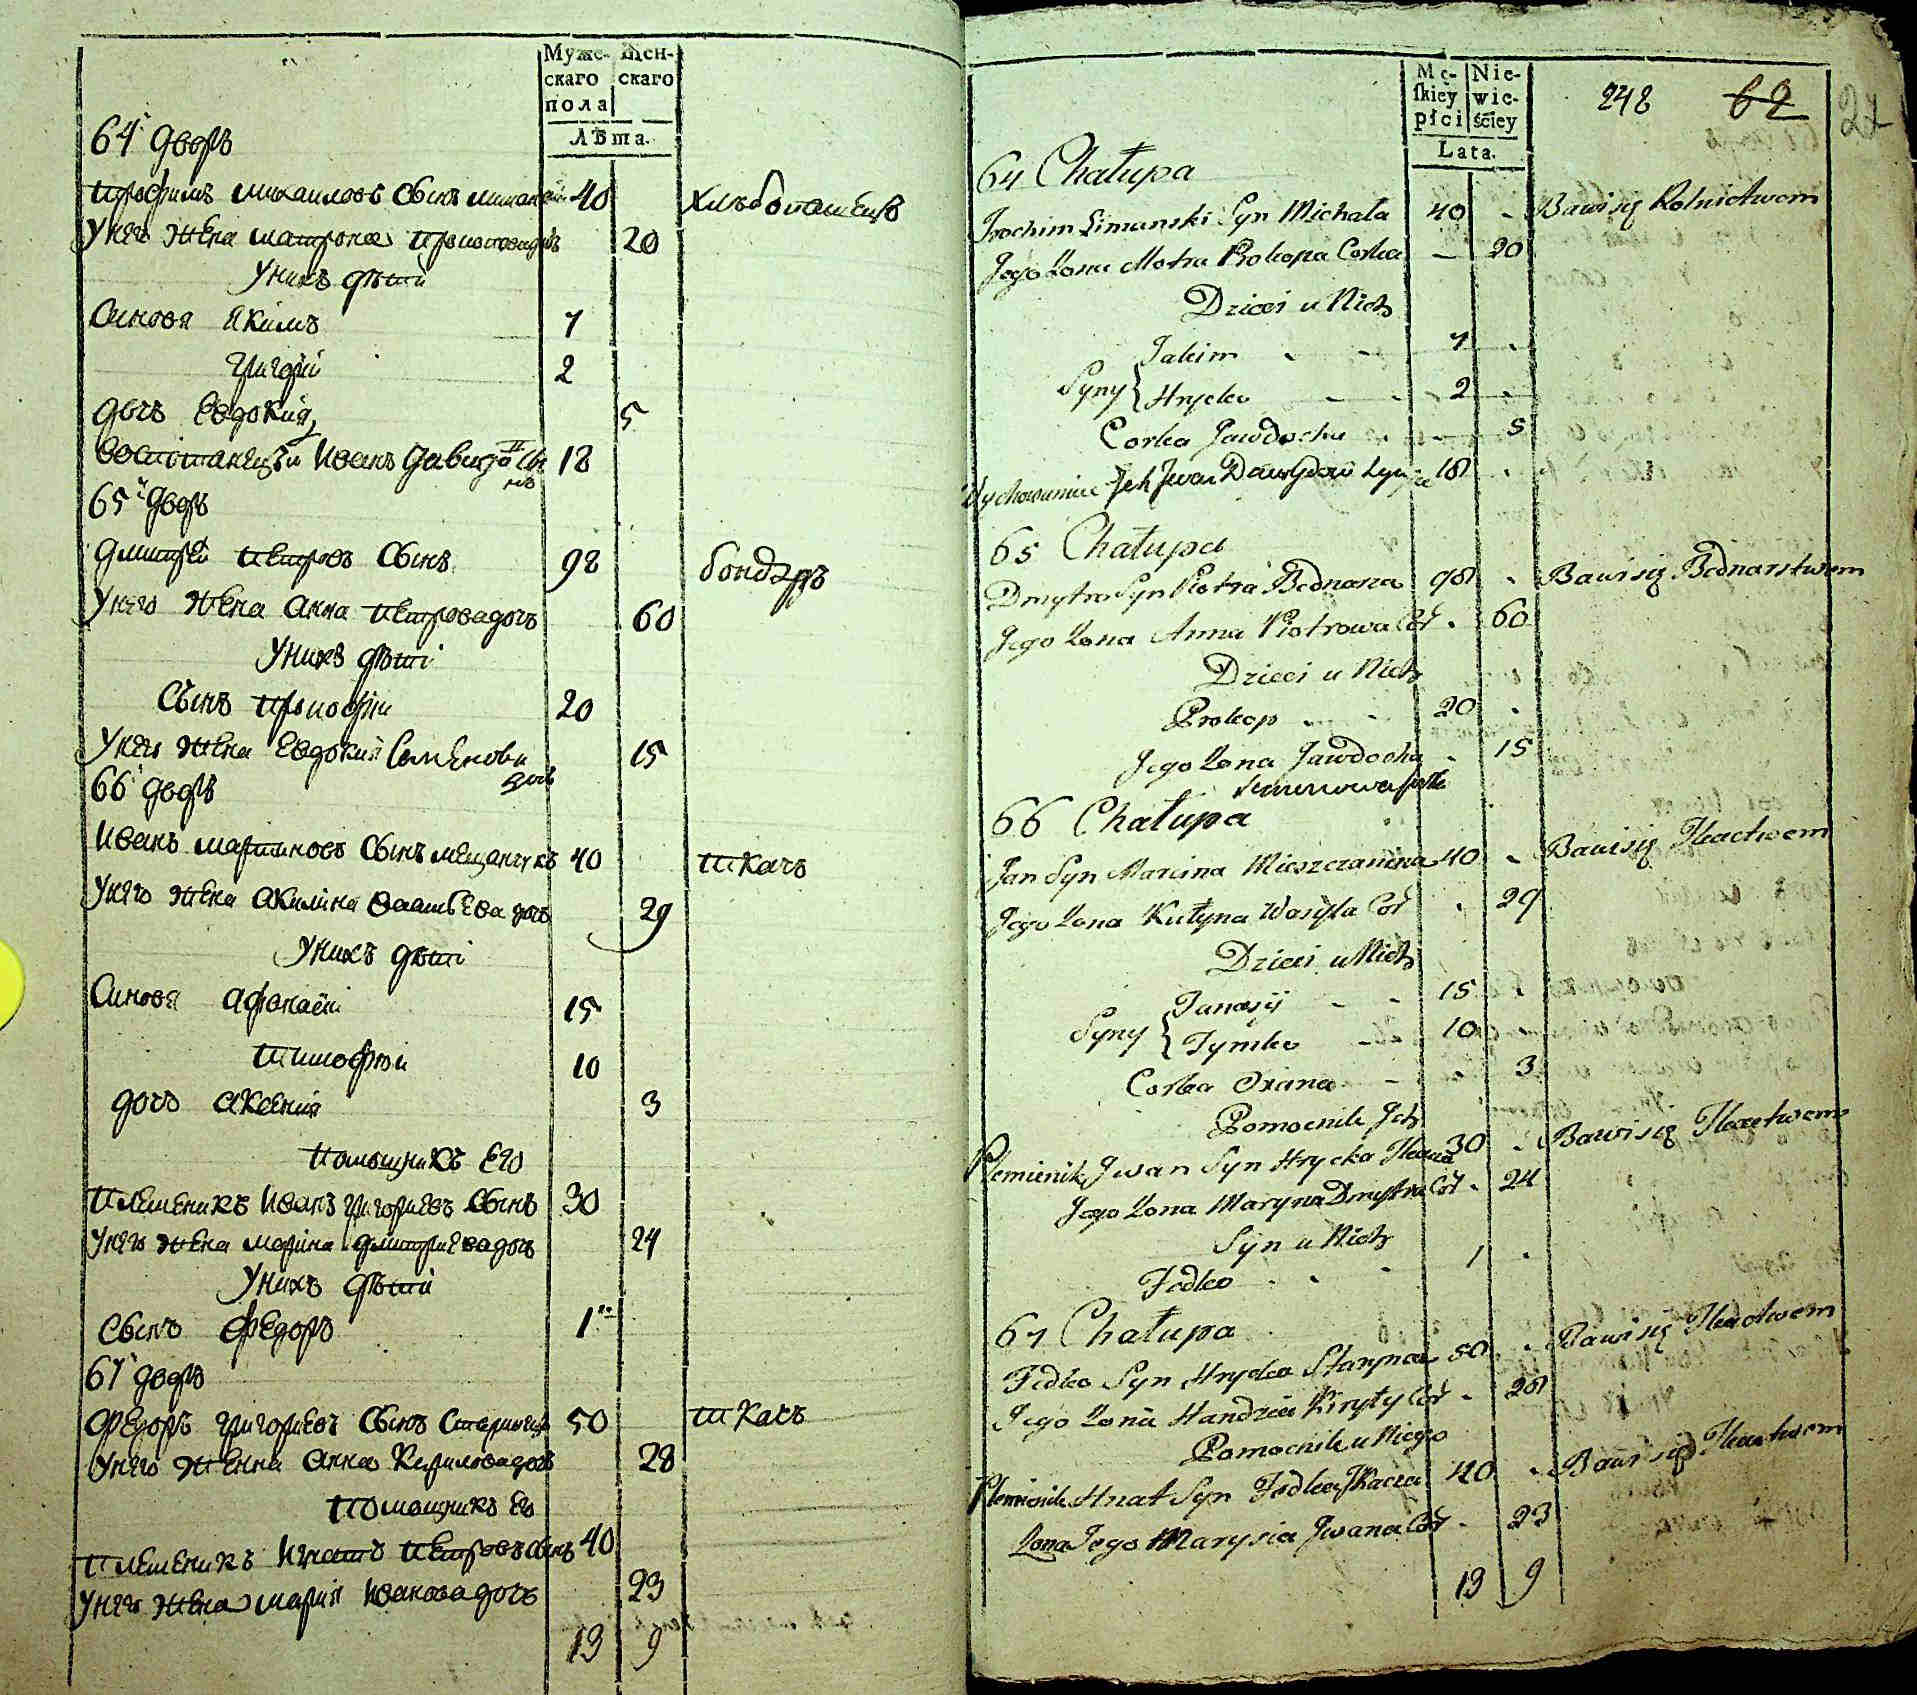 Муже-
скаго
пола
Жен-
скаго
Лѣта.
64 дворъ
Трофимъ Михаиловъ сынъ 40 хлѣбопашецъ
У него жена Матрона Прокопова дочь 20
У нихъ дѣти
Синовя Якимъ 7
Григорій 2
дочь Евдокия 5
воспитанецъ Иванъ Давидо 18
65 дворъ
Дмитрей Петровъ сынъ 98 бондаръ
У него жена Анна Петрова дочь 60
У нихъ дѣти
Сынъ Прокофій 20
У него жена Евдокия Семенова дочь 15
66 дворъ
Иванъ Мартиновъ сынъ мещанчукъ 40 ткачъ
У него жена Акилина Васильева дочь 29
У нихъ дѣти
Синовя Афонасій 15
Тимофѣй 10
дочь Аксения 3
Помощникъ его
Племеникъ Иванъ Григориевъ сынъ 30
У него жена Марина Дмитриева дочь 24
У нихъ дѣти
Сынъ Федоръ 1
67 дворъ
Федоръ Григориевъ сынъ 50 ткачъ
У него женна Анна Кирилова дочь 28
Помощникъ его
Племеникъ Игнатъ Петровъ сынъ 40
У него жена Мария Иванова дочь 23
13 9
Mę-
skiey
płci
Nie-
wie-
ściey
Lata.
248 62
27
64 Chałupa
Trochim Limanski Syn Michała 40 - Bawi się Rolnictwem
Jego Zona Motra Prokopa Corka - 20
Dzieci u Nich
Jakim - - 7 -
Syny { Hrycko - 2 -
Corka Jawdocha - 5
Wychowaniec Jch Jwan Dawydow Syn 18 -
65 Chałupa
Dmytro Syn Piotra Bednarza 98 - Bawi się Bednarstwem
Jego Zona Anna Piotrowa Cór - 60
Dzieci u Nich
Prokop - - 20 -
Jego Zona Jawdocha - 15
Semenowa Corka
66 Chałupa
Jan Syn Marcina Mieszczanina 40 - Bawi się Tkactwem
Jego Zona Kułyna Wasyla Cór - 29
Dzieci u Nich
Tanasij - - 15 -
Syny { Tymko - 10 -
Corka Oxana - - 3
Pomocnik Jch
Plemienik Jwan Syn Hrycka Tkacza 30 - Bawi się Tkactwem
Jego Zona Maryna Dmytra Cór - 24
Syn u Nich
Fedko - - - 1 -
67 Chałupa
Fedko Syn Hrycka 50 - Bawi się Tkactwem
Jego Zona Handzia Kiryły Cór - 28
Pomocnik u Niego
Plemienik Hnat Syn Fedka Tkacza 40 - Bawi się Tkactwem
Zona Jego Marysia Jwana Cór - 23
13 9